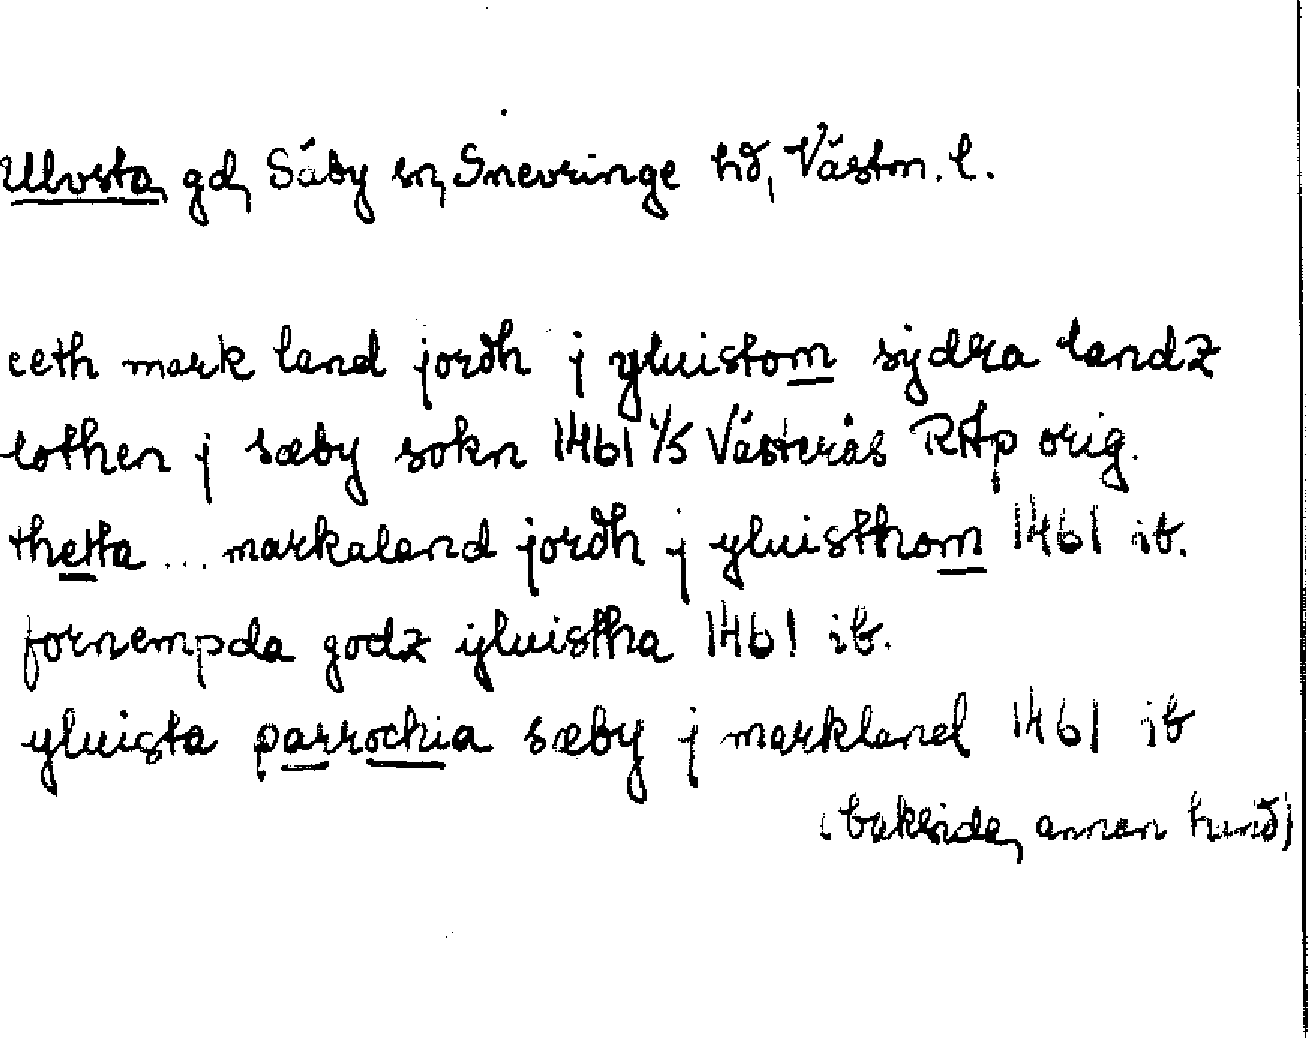 Ulvsta, gd, Säby sn, Snevringe hd, Västm. l.
eeth mark land jordh j yluistom sydra landz
lothen j sæby sokn 1461 1/5 Västerås RAp orig.
thetta ... markaland jordh j yluisthom 1461 ib.
fornempda godz yluistha 1461 ib.
yluista parrochia sæby j markland 1461 ib
(baksida, annan hand)